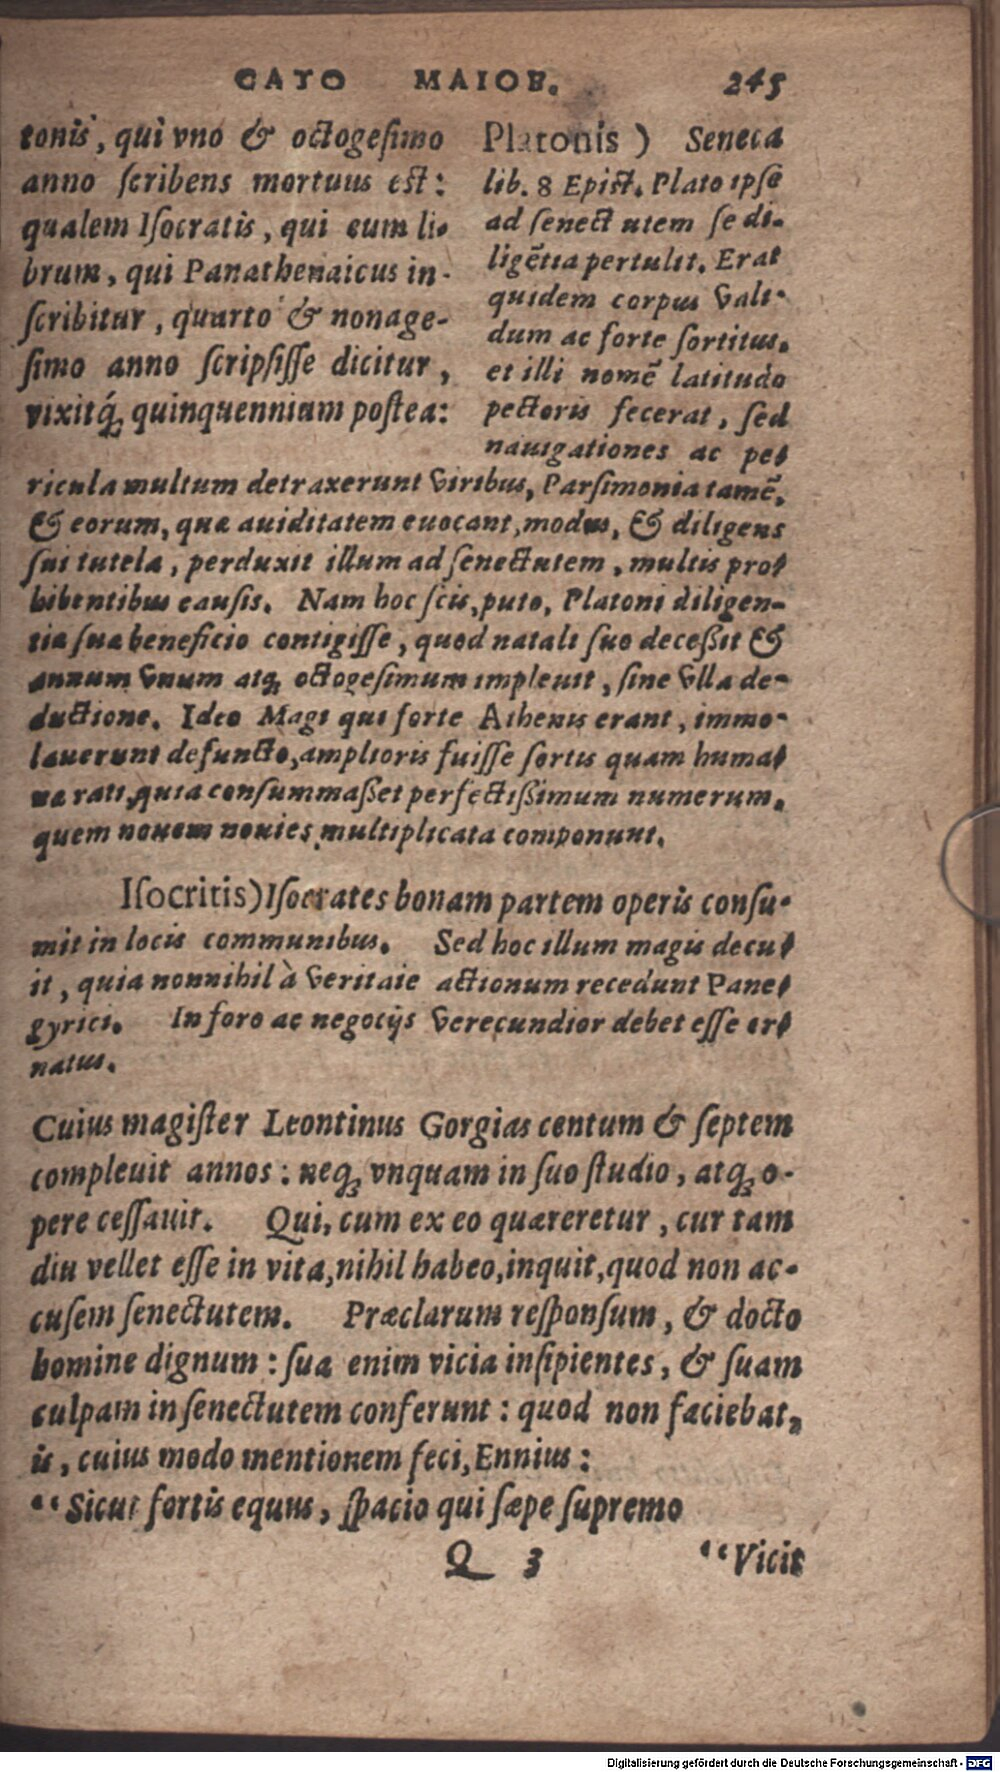 CATO MAIOR. 245
tonis, qui vno & octogesimo
anno scribens mortuus est:
qualem Isocratis, qui eum li-
brum, qui Panathenaicus in-
scribitur, quarto & nonage-
simo anno scripsisse dicitur,
vixitq́; quinquennium postea:
Platonis ) Seneca
lib. 8 Epist. Plato ipse
ad senectutem se di-
ligẽtia pertulit. Erat
quidem corpus vali-
dum ac forte sortitus.
et illi nomẽ latitudo
pectoris fecerat, sed
nauigationes ac pe-
ricula multum detraxerunt viribus, Parsimonia tamẽ,
& eorum, quæ auiditatem euocant, modus, & diligens
sui tutela, perduxit illum ad senectutem, multis pro-
hibentibus causis. Nam hoc scis, puto, Platoni diligen-
tia sua beneficio contigisse, quod natali suo deceßit &
annum vnum atq; octogesimum impleuit, sine vlla de-
ductione. Ideo Magi qui forte Athenis erant, immo-
lauerunt defuncto, amplioris fuisse sortis quam huma-
na rati, quia consummaßet perfectißimum numerum,
quem nouem nouies multiplicata componunt.
Isocritis) Isocrates bonam partem operis consu-
mit in locis communibus. Sed hoc illum magis decu-
it, quia nonnihil à veritate actionum recedunt Pane-
gyrici. In foro ac negocijs verecundior debet esse or-
natus.
Cuius magister Leontinus Gorgias centum & septem
compleuit annos: neq; vnquam in suo studio, atq; o-
pere cessauit. Qui, cum ex eo quæreretur, cur tam
diu vellet esse in vita, nihil habeo, inquit, quod non ac-
cusem senectutem. Præclarum responsum, & docto
homine dignum: sua enim vicia insipientes, & suam
culpam in senectutem conferunt: quod non faciebat,
is, cuius modo mentionem feci, Ennius:
“Sicut fortis equus, spacio qui sæpe supremo
Q 3 “Vicit
Digitalisierung gefördert durch die Deutsche Forschungsgemeinschaft - DFG